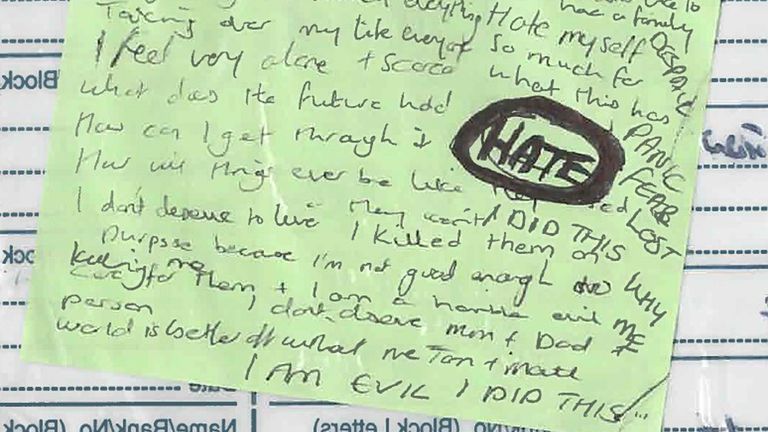 everything Hate myself
had a family
Taking over my life everyone so much for DESPAIR
I feel very alone + scared what this has
What does the future hold
How can I get through it HATE PANIC
How will things ever be like they used FEAR
LOST
I don't deserve to live They won't I DID THIS
I killed them on
purpose because I'm not good enough WHY
killing me
caring for them + I am a horrible evil ME
person I don't deserve mum + Dad
world is better off without me
I AM EVIL I DID THIS...
Date
Name/Bank/No. (Block
No. (Block Letters)
(Block